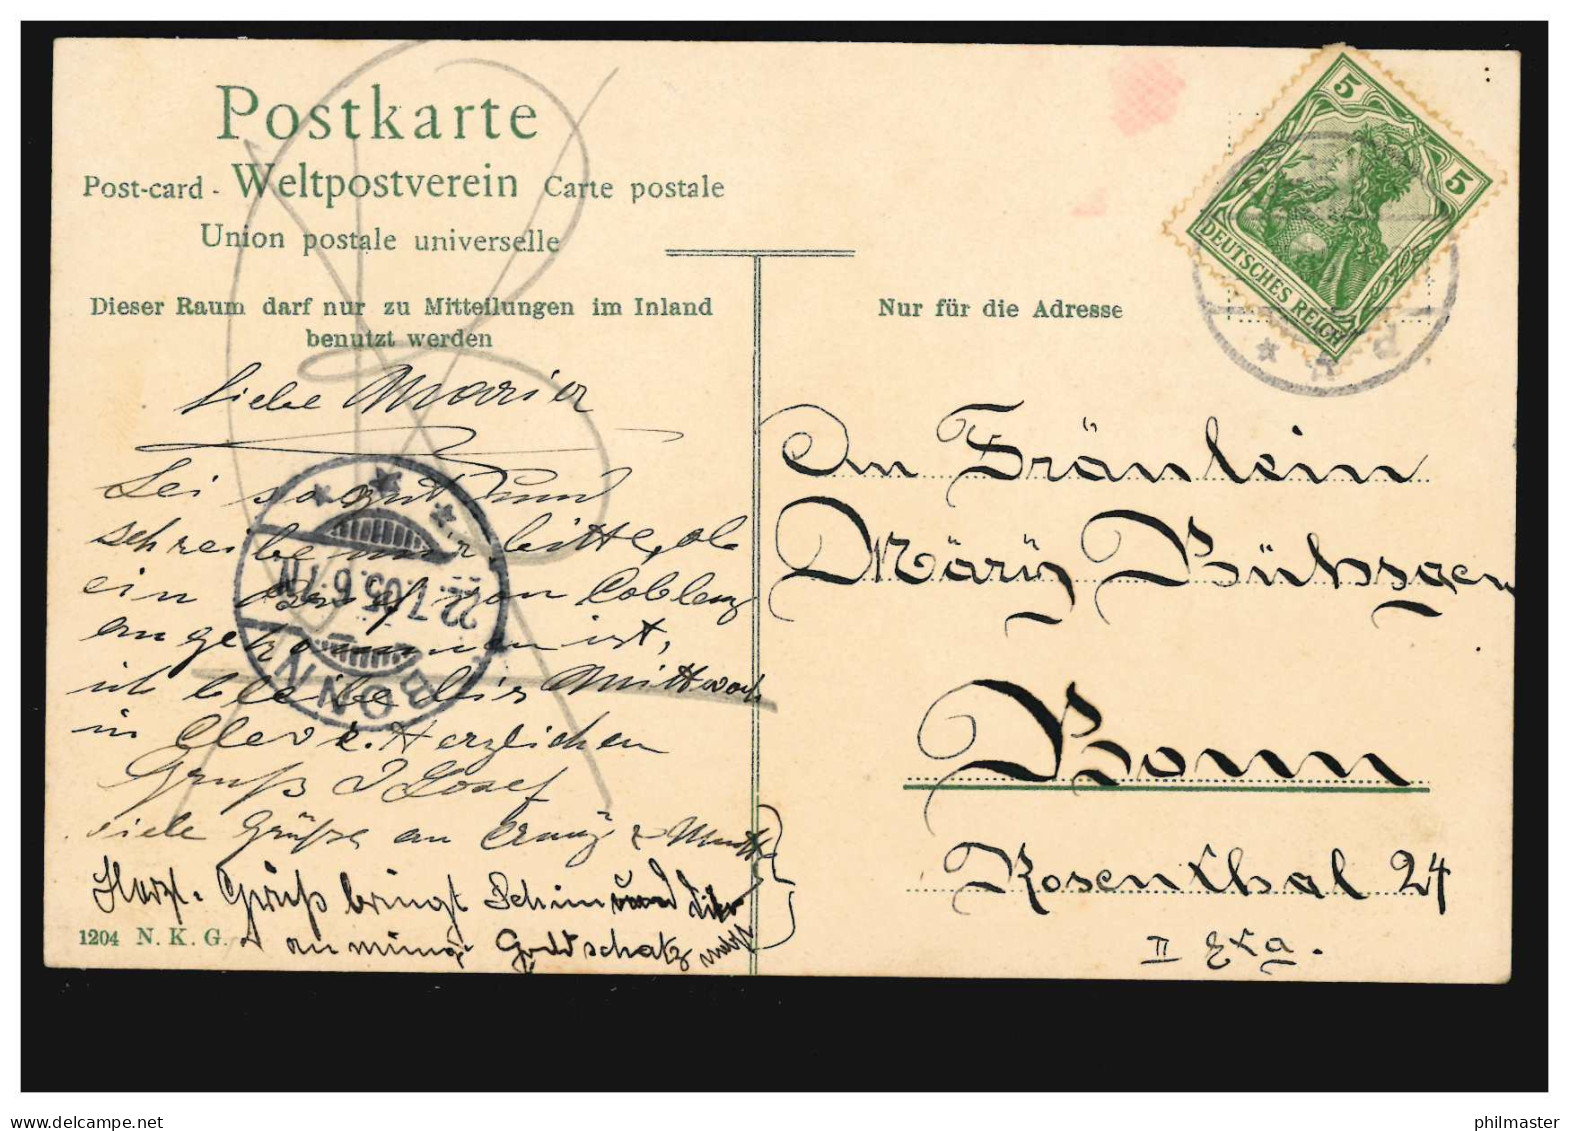 Postkarte
Post-card - Weltpostverein Carte postale
Union postale universelle
Dieser Raum darf nur zu Mitteilungen im Inland
benutzt werden
Nur für die Adresse
5
5
DEUTSCHES REICH
* A d
Liebe
Sei so gut und
schreibe mir bitte, ob
ein Brief von Coblenz
angekommen ist,
ich bleibe bis Mittwoch
in Cleve. Herzlichen
Gruß Josef
viele Grüße an
Herzl. Gruß bringt
Goldschatz
1204 N. K. G.
BONN
22.7.05.6-7N.
* * *
An Fräulein
Märÿ Bühsgen
Bonn
Rosenthal 24
II Exa.
philmaster